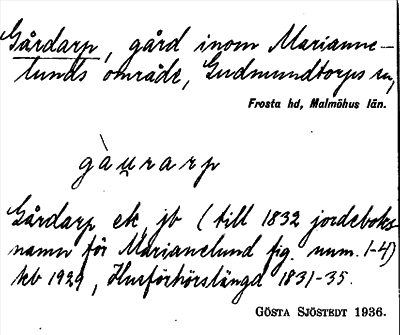 Gårdarp, gård inom Marianne-
lunds område, Gudmundtorps sn,
Frosta hd, Malmöhus län.
gàu̯rarp
Gårdarp ek jb (till 1832 jordeboks-
namn för Marianelund fig. num. 1-4)
kb 1929, Husförhörslängd 1831-35.
GÖSTA SJÖSTEDT 1936.